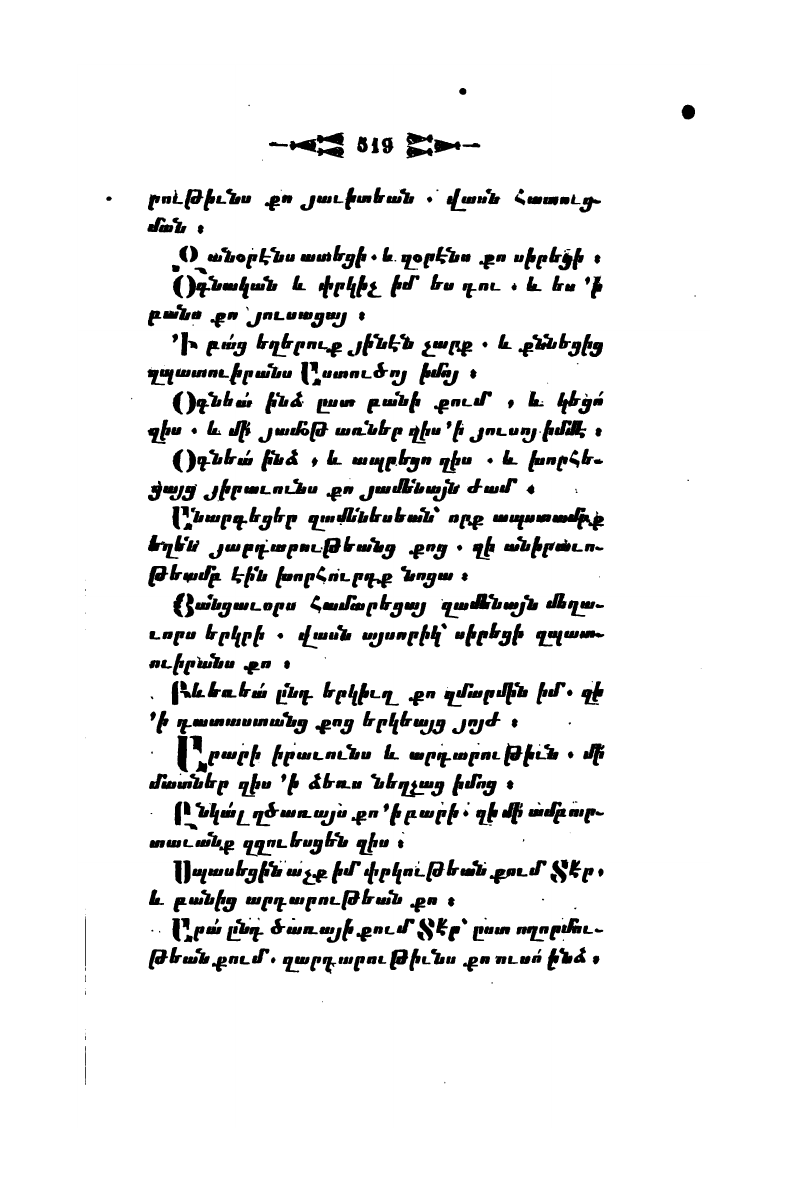 519
րութիւնս քո յաւիտեան . վասն հատուց-
ման ։
Զանօրէնս ատեցի . և զօրէնս քո սիրեցի ։
Օգնական և փրկիչ իմ ես դու . և ես ՚ի
բանս քո յուսացայ ։
՚Ի բաց եղերուք յինէն չարք . և քննեցից
զպատուիրանս Աստուծոյ իմոյ ։
Օգնեա՛ ինձ ըստ բանի քում , և կեցո՛
զիս . և մի՛ յամօթ առներ զիս ՚ի յուսոյ իմմէ ։
Օգնեա՛ ինձ , և ապրեցո զիս . և խորհե-
ցայց յիրաւունս քո յամենայն ժամ ։
Անարգեցեր զամենեսեան՝ որք ապստամբք
եղեն յարդարութեանց քոց . զի անիրաւու-
թեամբ էին խորհուրդք նոցա ։
Յանցաւորս համարեցայ զամենայն մեղա-
ւորս երկրի . վասն այսորիկ՝ սիրեցի զպատ-
ուիրանս քո ։
Բևեռեա՛ ընդ երկիւղ քո զմարմին իմ . զի
՚ի դատաստանց քոց երկեայց յոյժ ։
Արարի իրաւունս և արդարութիւն . մի՛
մատներ զիս ՚ի ձեռս նեղչաց իմոց ։
Ընկա՛լ զծառայս քո ՚ի բարի . զի մի՛ ամբար-
տաւանք զզուեսցեն զիս ։
Սպասեցին աչք իմ փրկութեան քում Տէր,
և բանից արդարութեան քո ։
Արա՛ ընդ ծառայի քում Տէր՝ ըստ ողորմու-
թեան քում . զարդարութիւնս քո ուսո՛ ինձ ։